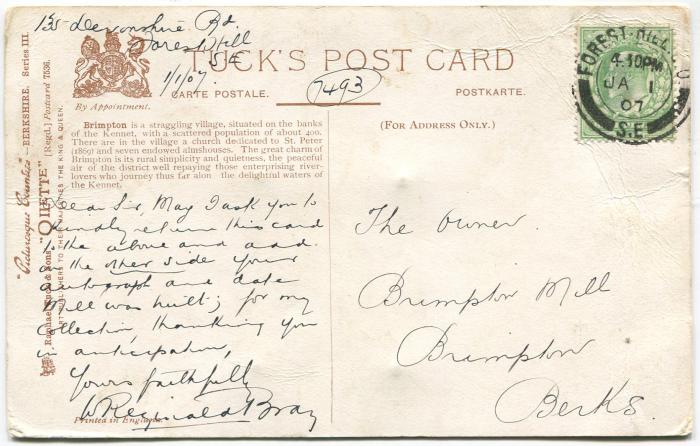 135 Devonshire Rd.
Forest Hill
S E
1/1/07
TUCK'S POST CARD
CARTE POSTALE.
POSTKARTE.
7493
By Appointment.
(FOR ADDRESS ONLY.)
FOREST-HILL
4.10PM
JA 1
07
S.E
"Picturesque Counties"—BERKSHIRE. Series III.
"OILETTE" [Regd.] Postcard 7536.
Raphael Tuck & Sons
ART PUBLISHERS TO THEIR MAJESTIES THE KING & QUEEN.
Brimpton is a straggling village, situated on the banks
of the Kennet, with a scattered population of about 400.
There are in the village a church dedicated to St. Peter
(1869) and seven endowed almshouses. The great charm of
Brimpton is its rural simplicity and quietness, the peaceful
air of the district well repaying those enterprising river-
lovers who journey thus far along the delightful waters of
the Kennet.
Dear Sir, May I ask you to
kindly return this card
to the above and add.
on the other side your
autograph and date
Mill was built; for my
collection, thanking you
in anticipation,
Yours faithfully
W Reginald Bray
Printed in England.
The Owner.
Brimpton Mill
Brimpton
Berks.